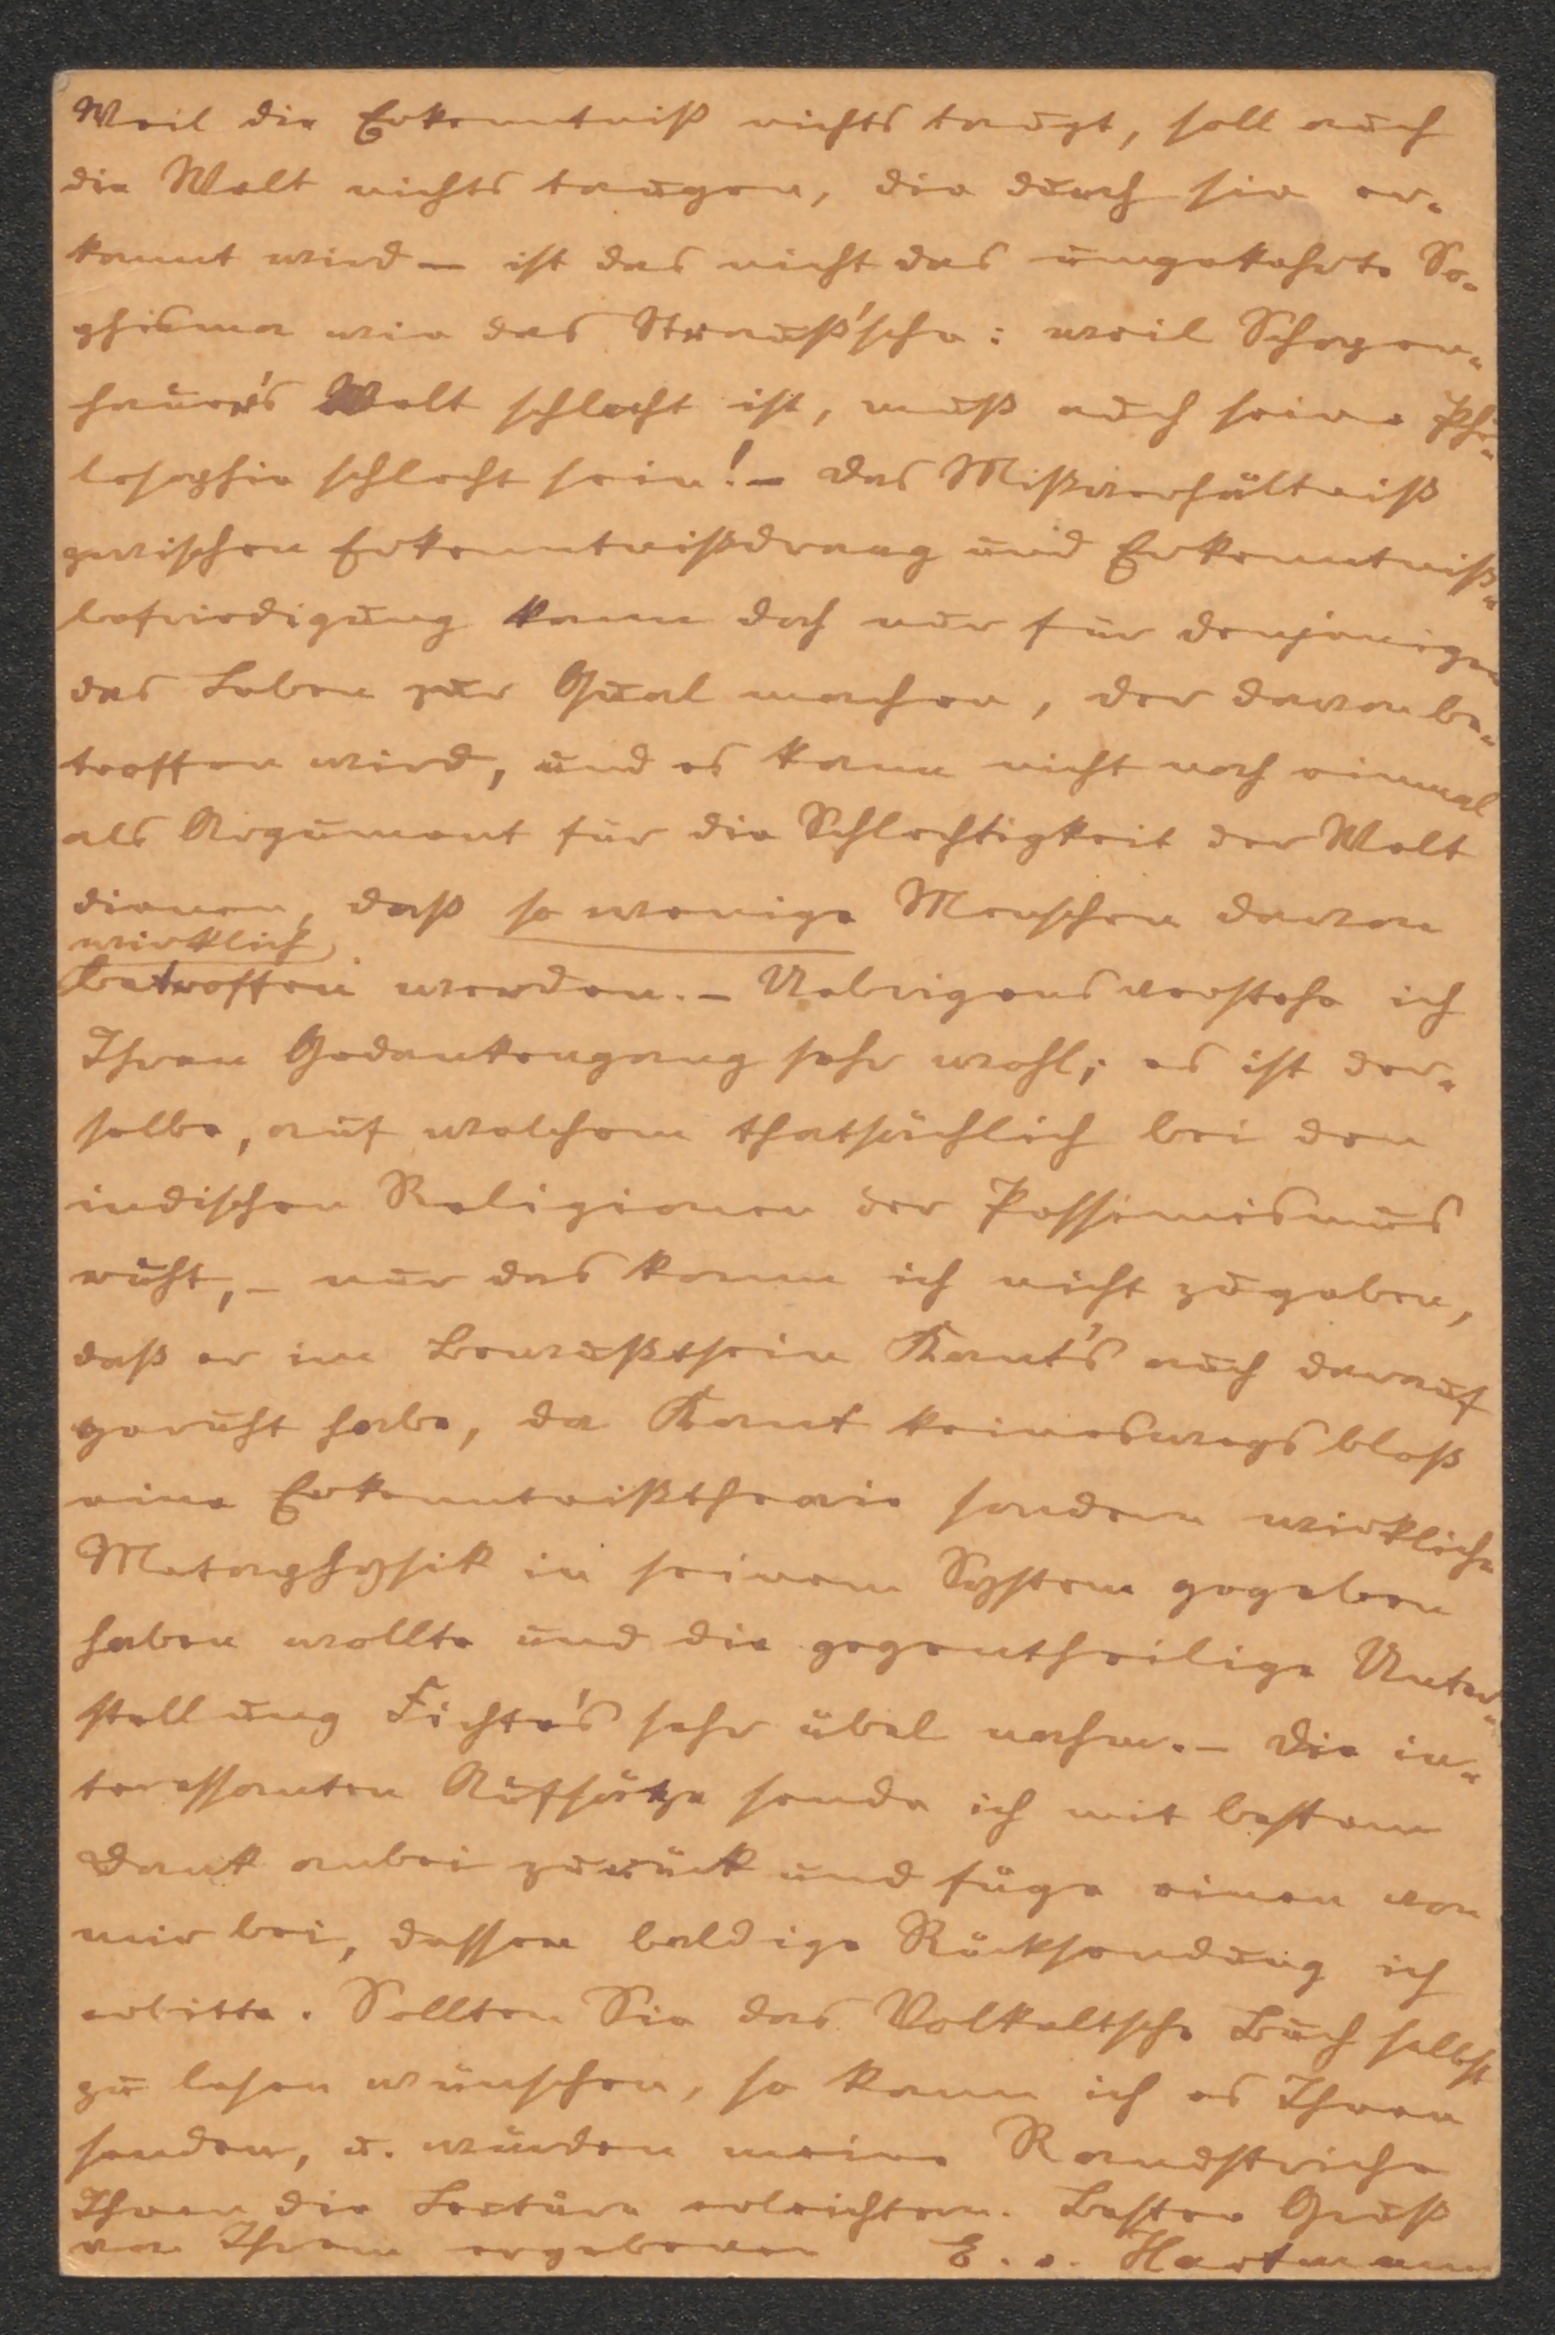 Weil die Erkenntniß nichts taugt, soll auch
die Welt nichts taugen, die durch sie er-
kannt wird – ist das nicht das umgekehrte So-
phisma wie das Strauß'sche: weil Schopen-
hauer's Welt schlecht ist, muß auch seine Phi-
losophie schlecht sein! – Das Mißverhältniß
zwischen Erkenntnißdrang und Erkenntniß-
befriedigung kann doch nur für denjenigen
das Leben zur Qual machen, der davon be-
troffen wird, und es kann nicht noch einmal
als Argument für die Schlechtigkeit der Welt
dienen, daß so wenige Menschen davon
wirklich
betroffen werden. – Uebrigens verstehe ich
Ihren Gedankengang sehr wohl; es ist der-
selbe, auf welchem thatsächlich bei den
indischen Religionen der Pessimismus
ruht, – nur das kann ich nicht zugeben,
daß er im Bewußtsein Kant's auch darauf
geruht habe, da Kant keineswegs bloß
eine Erkenntnißtheorie sondern wirkliche
Metaphysik in seinem System gegeben
haben wollte und die gegentheilige Unter-
stellung Fichte's sehr übel nahm. – Die in-
teressanten Aufsätze sende ich mit bestem
Dank anbei zurück und füge einen von
mir bei, dessen baldige Rücksendung ich
erbitte. Sollten Sie das Volkeltsche Buch selbst
zu lesen wünschen, so kann ich es Ihnen
senden, u. würden meine Randstriche
Ihnen die Lectüre erleichtern. Besten Gruß
von Ihrem ergebenen E. v. Hartmann